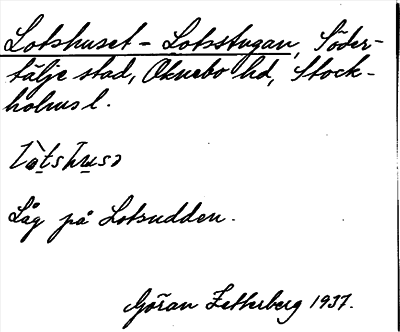 Lotshuset - Lotsstugan, Söder-
tälje stad, Öknebo hd, Stock-
holms l.
Låg på Lotsudden.
Göran Zetterberg 1937.